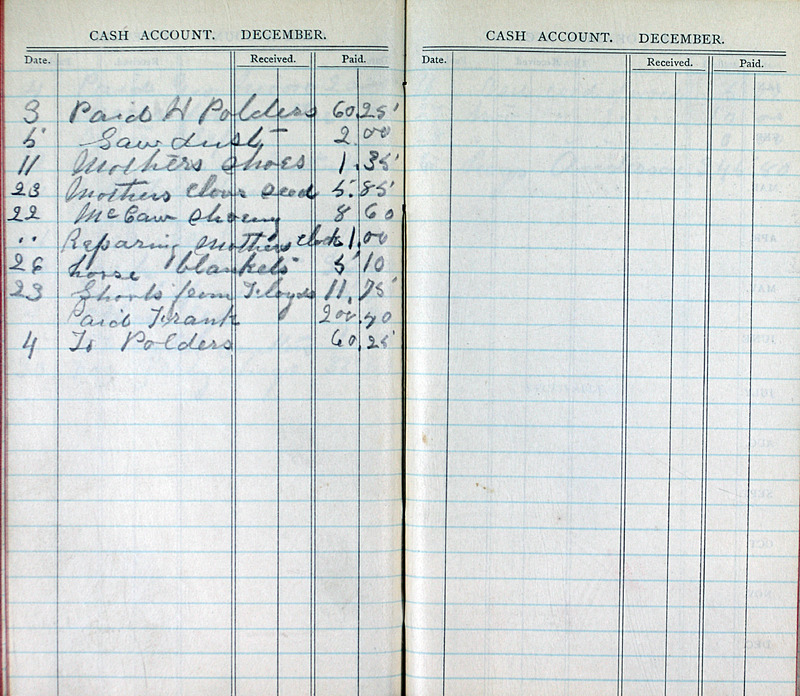 CASH ACCOUNT. DECEMBER.
Date. Received. Paid.
3 Paid H Polders 60.25
5 Saw dust 2.00
11 Mothers shoes 1.35
23 Mothers clover seed 5.85
22 McCaw shoeing 8 60
" Reparing Mothers clock 1.00
26 horse blankets 5 10
23 Shorts from Floyds 11.75
Paid Frank
4 To Polders 60.25
CASH ACCOUNT. DECEMBER.
Date. Received. Paid.